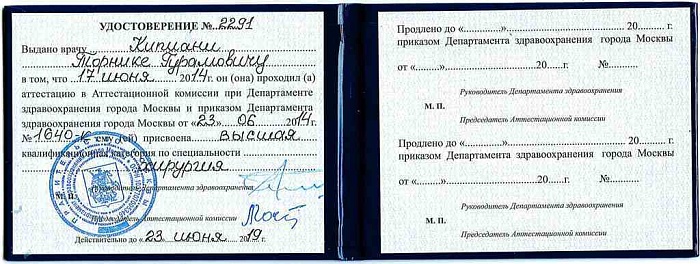 УДОСТОВЕРЕНИЕ № 2291
Выдано врачу Кипиани
Торнике Гурамовичу
в том, что 17 июня 2014 г. он (она) проходил (а)
аттестацию в Аттестационной комиссии при Департаменте
здравоохранения города Москвы и приказом Департамента
здравоохранения города Москвы от «23» 06 2014 г.
№ 1640-к ему (ей) присвоена высшая
квалификационная категория по специальности
хирургия
Руководитель Департамента здравоохранения
М. П.
Председатель Аттестационной комиссии
Действительно до «23 июня 2019 г.
Продлено до «............» ............ 20......... г.
приказом Департамента здравоохранения города Москвы
от «.........».............................20......г. №..........
Руководитель Департамента здравоохранения
М. П.
Председатель Аттестационной комиссии
Продлено до «............» ............ 20......... г.
приказом Департамента здравоохранения города Москвы
от «.........».............................20......г. №..........
Руководитель Департамента здравоохранения
М. П.
Председатель Аттестационной комиссии